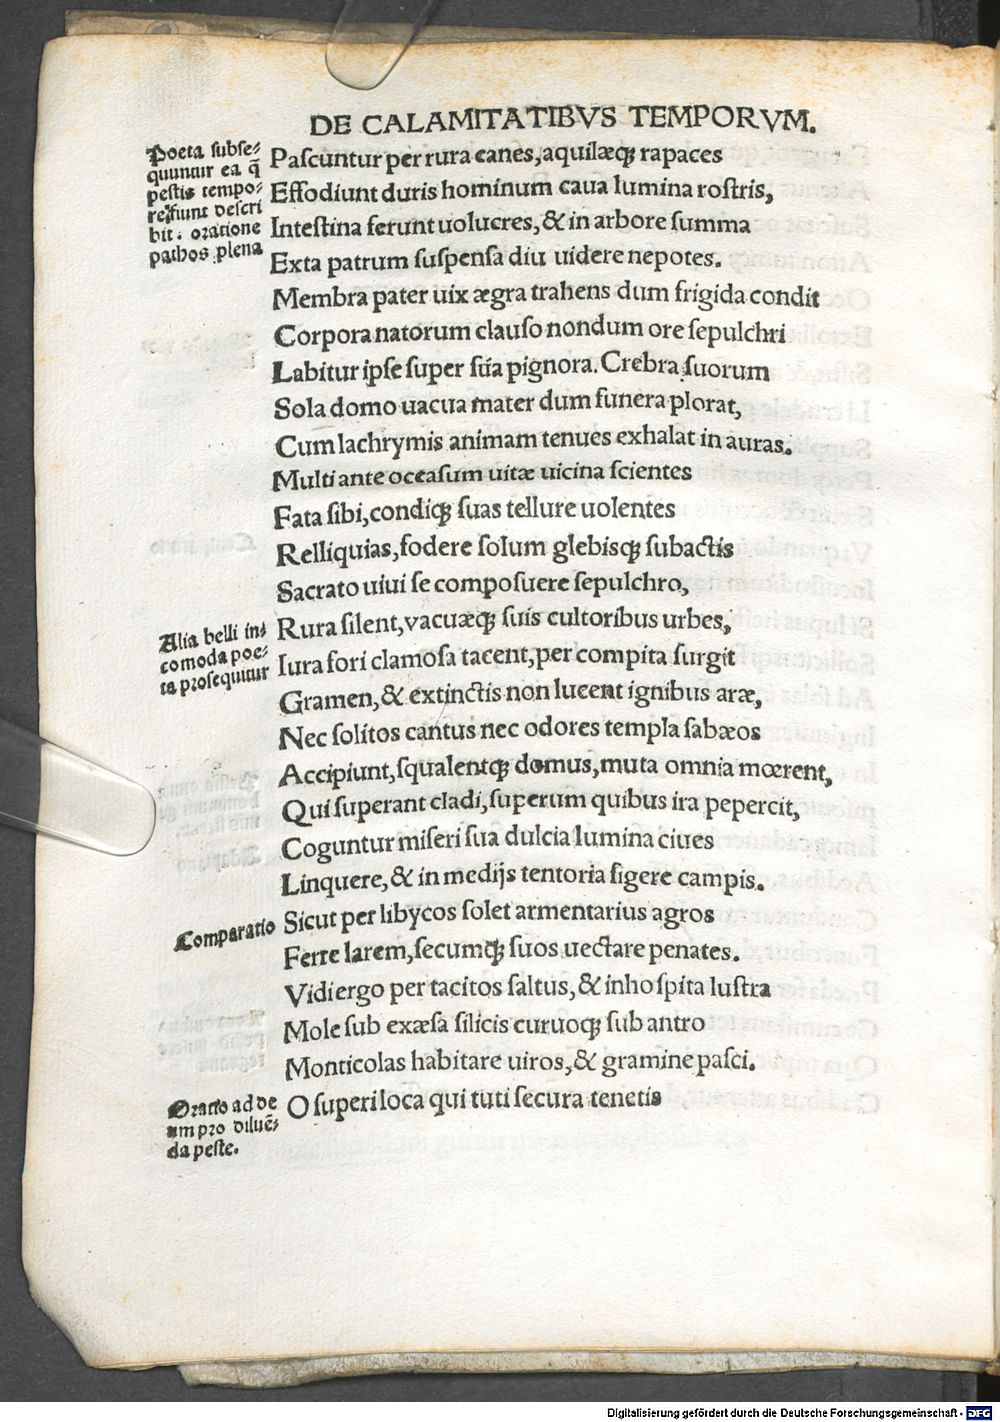 DE CALAMITATIBVS TEMPORVM.
Poeta subse-
quuntur ea q̃
pestis tempo-
re fiunt descri
bit. oratione
pathos plena
Pascuntur per rura canes, aquilæqꝫ rapaces
Effodiunt duris hominum caua lumina rostris,
Intestina ferunt uolucres, & in arbore summa
Exta patrum suspensa diu uidere nepotes.
Membra pater uix ægra trahens dum frigida condit
Corpora natorum clauso nondum ore sepulchri
Labitur ipse super sua pignora. Crebra suorum
Sola domo uacua mater dum funera plorat,
Cum lachrymis animam tenues exhalat in auras.
Multi ante occasum uitæ uicina scientes
Fata sibi, condiqꝫ suas tellure uolentes
Relliquias, fodere solum glebisqꝫ subactis
Sacrato uiui se composuere sepulchro,
Alia belli in-
comoda poe-
ta prosequitur
Rura silent, vacuæqꝫ suis cultoribus urbes,
Iura fori clamosa tacent, per compita surgit
Gramen, & extinctis non lucent ignibus aræ,
Nec solitos cantus nec odores templa sabæos
Accipiunt, squalentqꝫ domus, muta omnia mœrent,
Qui superant cladi, superum quibus ira pepercit,
Coguntur miseri sua dulcia lumina ciues
Linquere, & in medijs tentoria figere campis.
Comparatio
Sicut per libycos solet armentarius agros
Ferre larem, secumqꝫ suos uectare penates.
Vidi ergo per tacitos saltus, & inhospita lustra
Mole sub exæsa silicis curuoqꝫ sub antro
Monticolas habitare uiros, & gramine pasci.
Oratio ad de
um pro diluē-
da peste.
O superi loca qui tuti secura tenetis
Digitalisierung gefördert durch die Deutsche Forschungsgemeinschaft - DFG